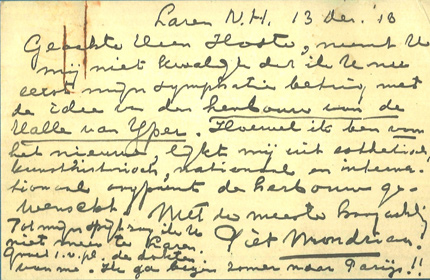 Laren N.H. 13 Dec. '18
Geachte Heer Hoste, neemt U
mij niet kwalijk dat ik U nu
eerst mijn sympathie betuig met
de idee van den herbouw van de
Halle van Yper. Hoewel ik ben van
het nieuwe, lijkt mij uit esthetisch,
kunsthistorisch, nationaal en interna-
tionaal oogpunt de herbouw ge-
wenscht. Met de meeste hoogachting
Piet Mondriaan.
Tot mijn spijt zag ik U
niet meer te Laren.
van me. Ik ga tegen zomer naar Parijs!!